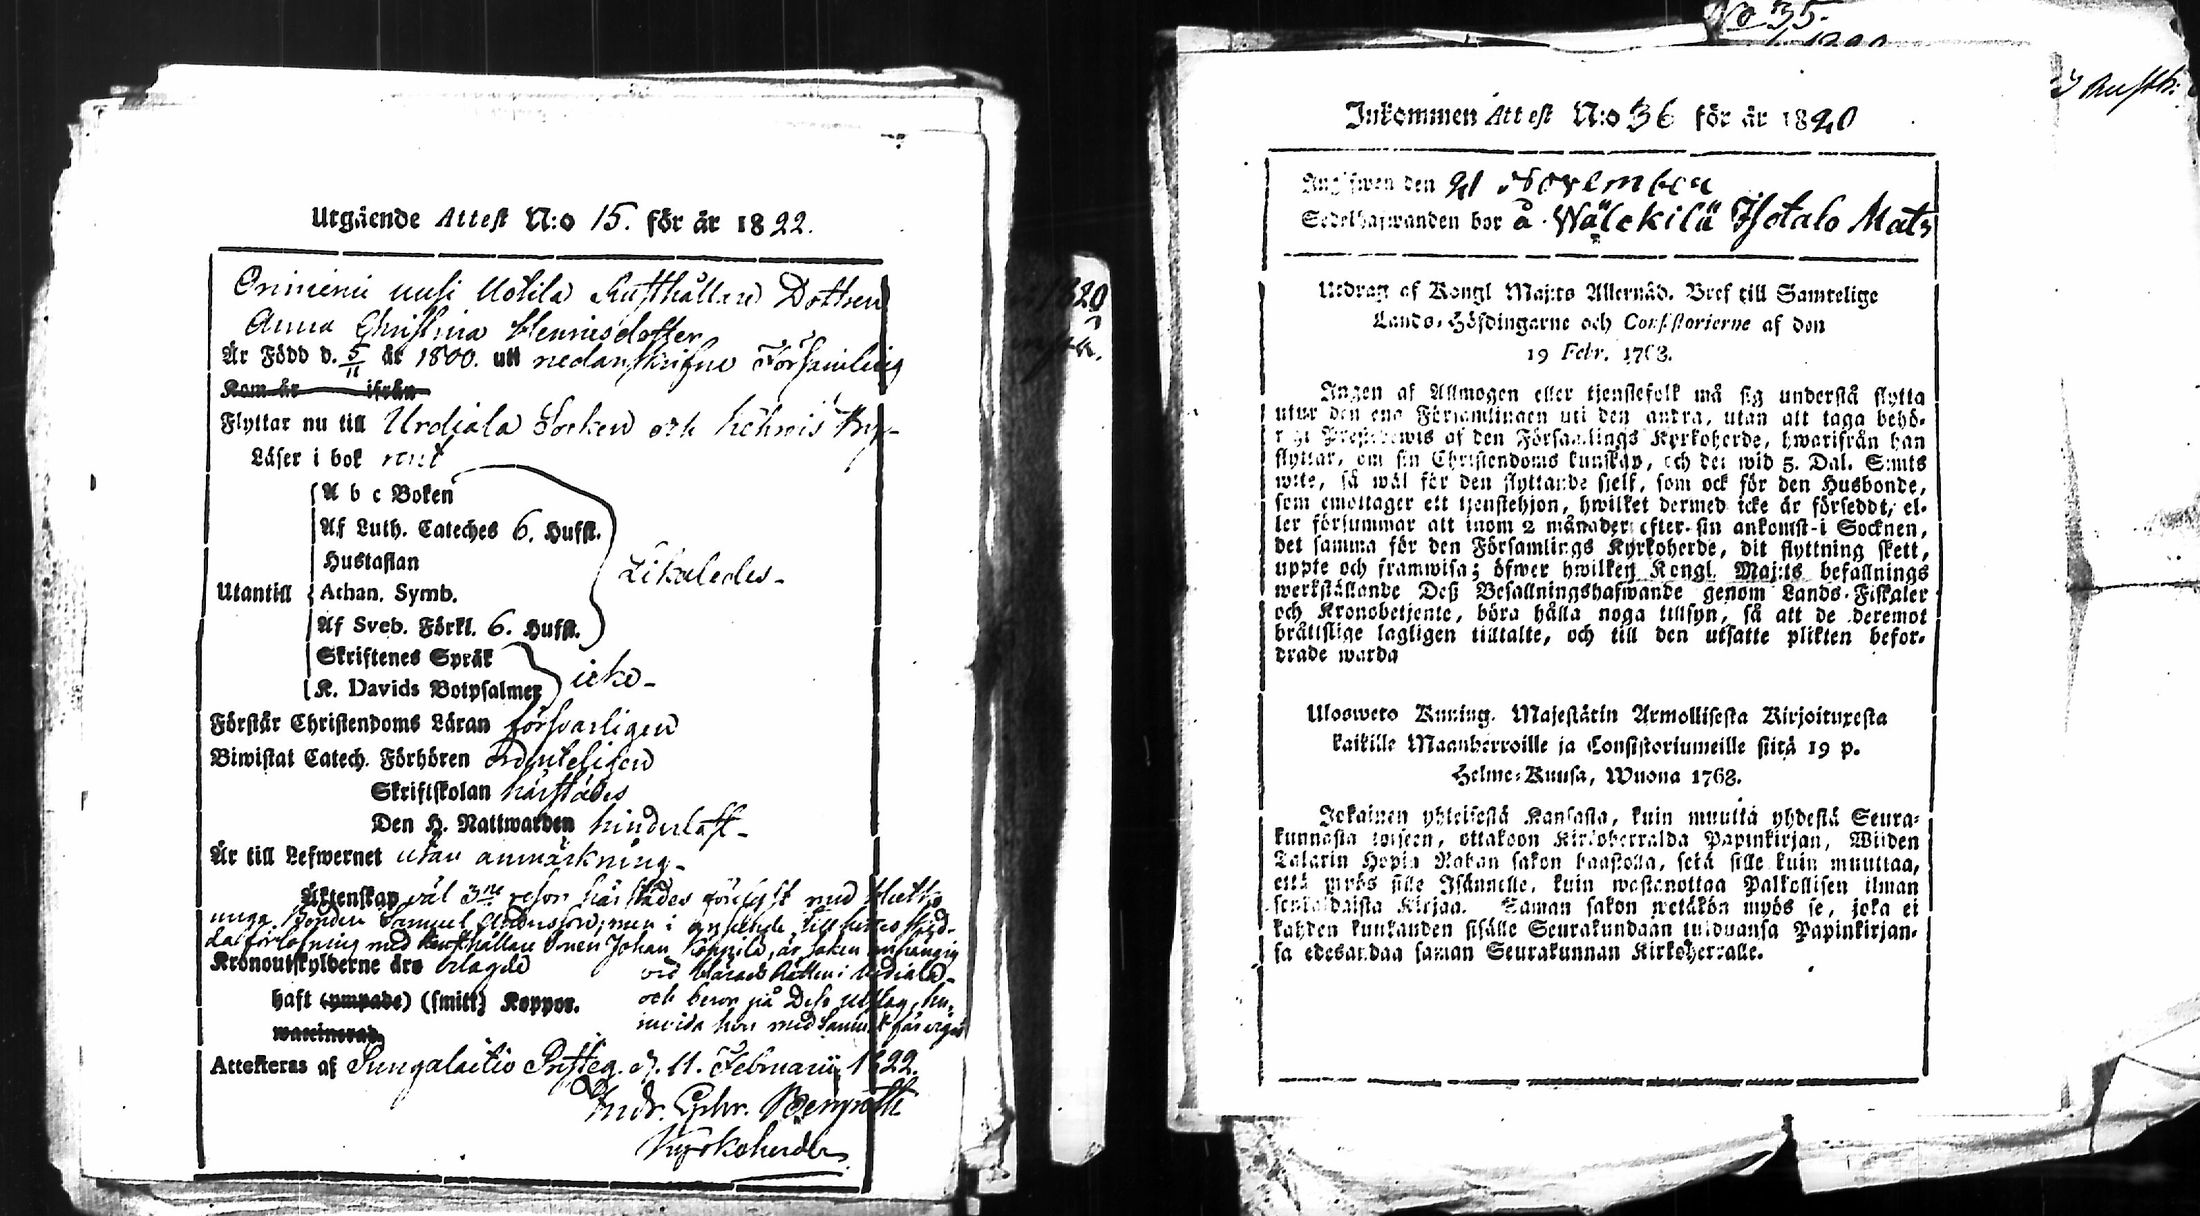 Utgående Attest N:o 15. för år 1822.
Oriniemi uusi Uotila Rusthållare Dottren
Anna Christina Henricsdotter
Är Född d. 5/11 år 1800. utl nedanskrifne Församling
Kom år ifrån
Flyttar nu till Urdiala Socken och Hähnis By-
Läser i bok rent
A b c Boken
Af Luth. Cateches 6. Hufst.
Hustaflan
Likaledes-
Utantill Athan. Symb.
Af Sveb. Förkl. 6. Hufst.
Skriftenes Språk
icke-
K. Davids Botpsalmer
Förstår Christendoms Läran försvarligen
Biwistat Catech. Förhören ordenteligen
Skriftskolan härstädes
Den H. Nattwarden hinderlöst-
Är till Lefwernet utan anmärkning-
Äktenskap väl 3ne resor härstädes förelyst med
unga Bonden Samuel Andersson, men i anseende till
förlofning med Rusthållare Sonen Johan är saken anhängig
Kronoutskylderne äro erlagde
vid Härads Rätten i Urdiala-
haft (ympade) (smitt) Koppor.
och beror på Dess Utslag, hu-
ruvida hon med Samuel får vigas
waccinerad
Attesteras af Sungalaitio Prästeg. d. 11. Februarii 1822.
Andr. Gabr. Bergroth
Kyrkoherde
No 35.
Inkommen Attest N:o 36 för år 1820
Angifwen den 21 November
Sedelhafwanden bor å Wälckilä Isotalo Mats
Utdrag af Kongl Maj:ts Allernåd. Bref till Samtelige
Lands-Höfdingarne och Consistorierne af den
19 Febr. 1763.
Ingen af Allmogen eller tjenstefolk må sig understå flytta
utur den ena Församlingen uti den andra, utan att taga behö-
rigt Prestbewis af den Församlings Kyrkoherde, hwarifrån han
flyttar, om sin Christendoms kunskap, och det wid 5. Dal. S:mts
wite, så wäl för den flyttande sjelf, som ock för den Husbonde,
som emottager ett tjenstehjon, hwilket dermed icke är försedt, el-
ler försummar att inom 2 månader efter sin ankomst i Socknen,
det samma för den Församlings Kyrkoherde, dit flyttning skett,
uppte och framwisa; öfwer hwilken Kongl. Maj:ts befallnings
werkställande Deß Befallningshafwande genom Lands-Fiskaler
och Kronobetjente, böra hålla noga tillsyn, så att de deremot
bråttslige lagligen tilltalte, och till den utsatte plikten befor-
drade warda
Uloswero Kuning. Majestätin Armollisesta Kirjoituxesta
kaikille Maanherroille ja Consistoriumeille siitä 19 p.
Helme-Kuusa, Wuona 1763.
Jokainen yhteisestä Kansasta, kuin muutta yhdestä Seura-
kunnasta toiseen, ottakoon Kirkoherralda Papinkirjan, Wiiden
Talarin Hopia Rahan sakon haastolla, setä sille kuin muuttaa,
että myös sille Isännelle, kuin wastanottaa Palkollisen ilman
senkaldaista Kirjaa. Saman sakon wetäkön myös se, joka ei
kahden kuukauden sisälle Seurakundaan tulduansa Papinkirjan-
sa edesandaa saman Seurakunnan Kirkoherralle.